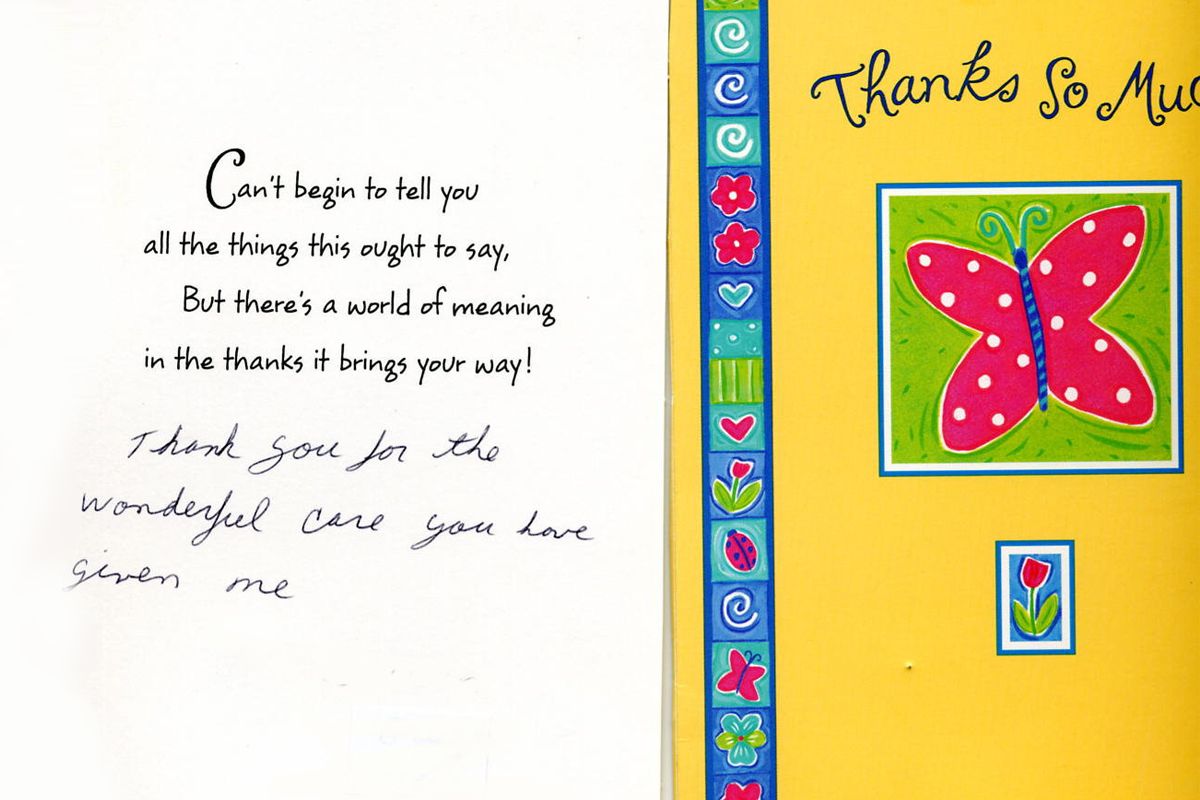 Can't begin to tell you
all the things this ought to say,
But there's a world of meaning
in the thanks it brings your way!
Thank you for the
wonderful care you have
given me
Thanks So Muc